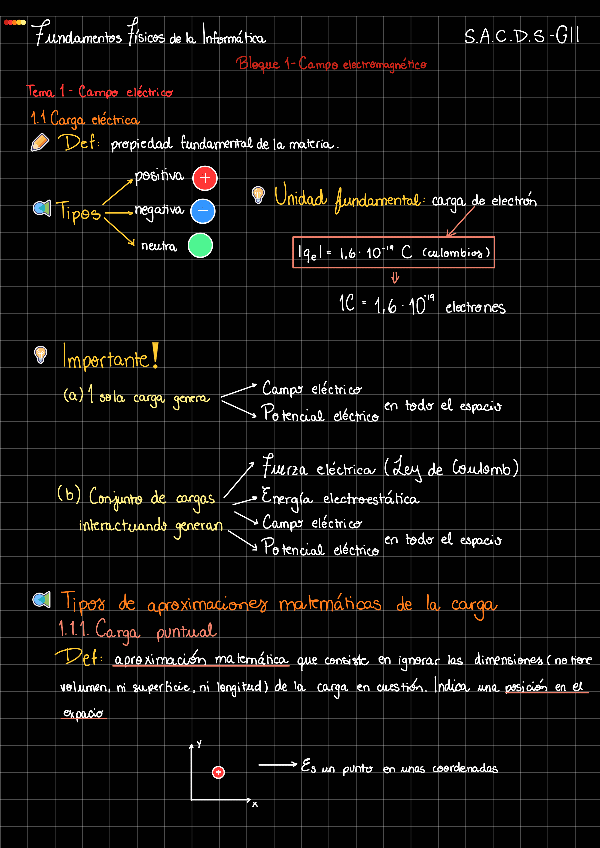 Fundamentos Físicos de la Informática
S.A.C.D.S-G11
Bloque 1- Campo electromagnético
Tema 1- Campo eléctrico
1.1 Carga eléctrica
Def: propiedad fundamental de la materia.
Tipos
positiva +
negativa -
neutra
Unidad fundamental: carga de electrón
|qe| = 1,6 · 10⁻¹⁹ C (culombios)
1C = 1,6 · 10⁻¹⁹ electrones
Importante!
(a) 1 sola carga genera
Campo eléctrico
Potencial eléctrico en todo el espacio
(b) Conjunto de cargas
interactuando generan
Fuerza eléctrica (Ley de Coulomb)
Energía electroestática
Campo eléctrico
Potencial eléctrico en todo el espacio
Tipos de aproximaciones matemáticas de la carga
1.1.1. Carga puntual
Def: aproximación matemática que consiste en ignorar las dimensiones (no tiene
volumen, ni superficie, ni longitud) de la carga en cuestión. Indica una posición en el
espacio
y
+
x
Es un punto en unas coordenadas